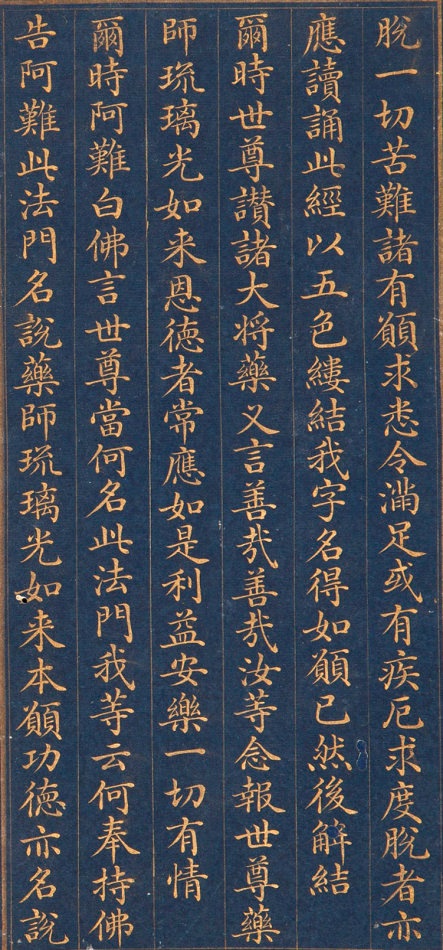 脫一切苦難諸有願求悉令滿足或有疾厄求度脫者亦
應讀誦此經以五色縷結我字名得如願已然後解結
爾時世尊讃諸大将藥叉言善㢤善㢤汝等念報世尊藥
師琉璃光如来恩徳者常應如是利益安樂一切有情
爾時阿難白佛言世尊當何名此法門我等云何奉持佛
告阿難此法門名說藥師琉璃光如来本願功徳亦名說